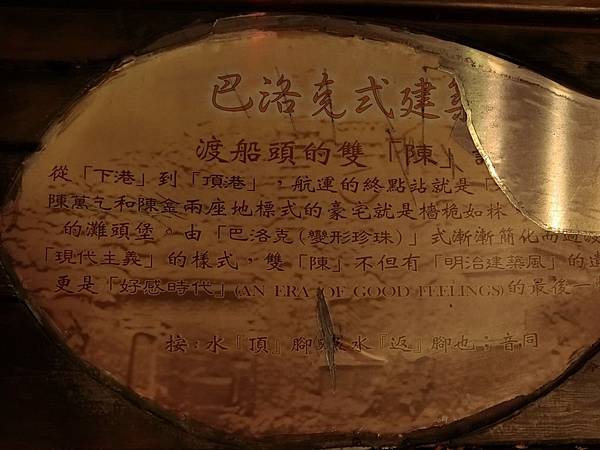 巴洛克式建
渡船頭的雙「陳」
從「下港」到「頂港」，航運的終點站就是「
陳萬乞和陳金兩座地標式的豪宅就是檣桅如林
的灘頭堡。由「巴洛克(變形珍珠)」式漸漸簡化而過渡
「現代主義」的樣式，雙「陳」不但有「明治建築風」的
更是「好感時代」(AN ERA OF GOOD FEELINGS)的最後一
按：水「頂」腳 水「返」腳也；音同